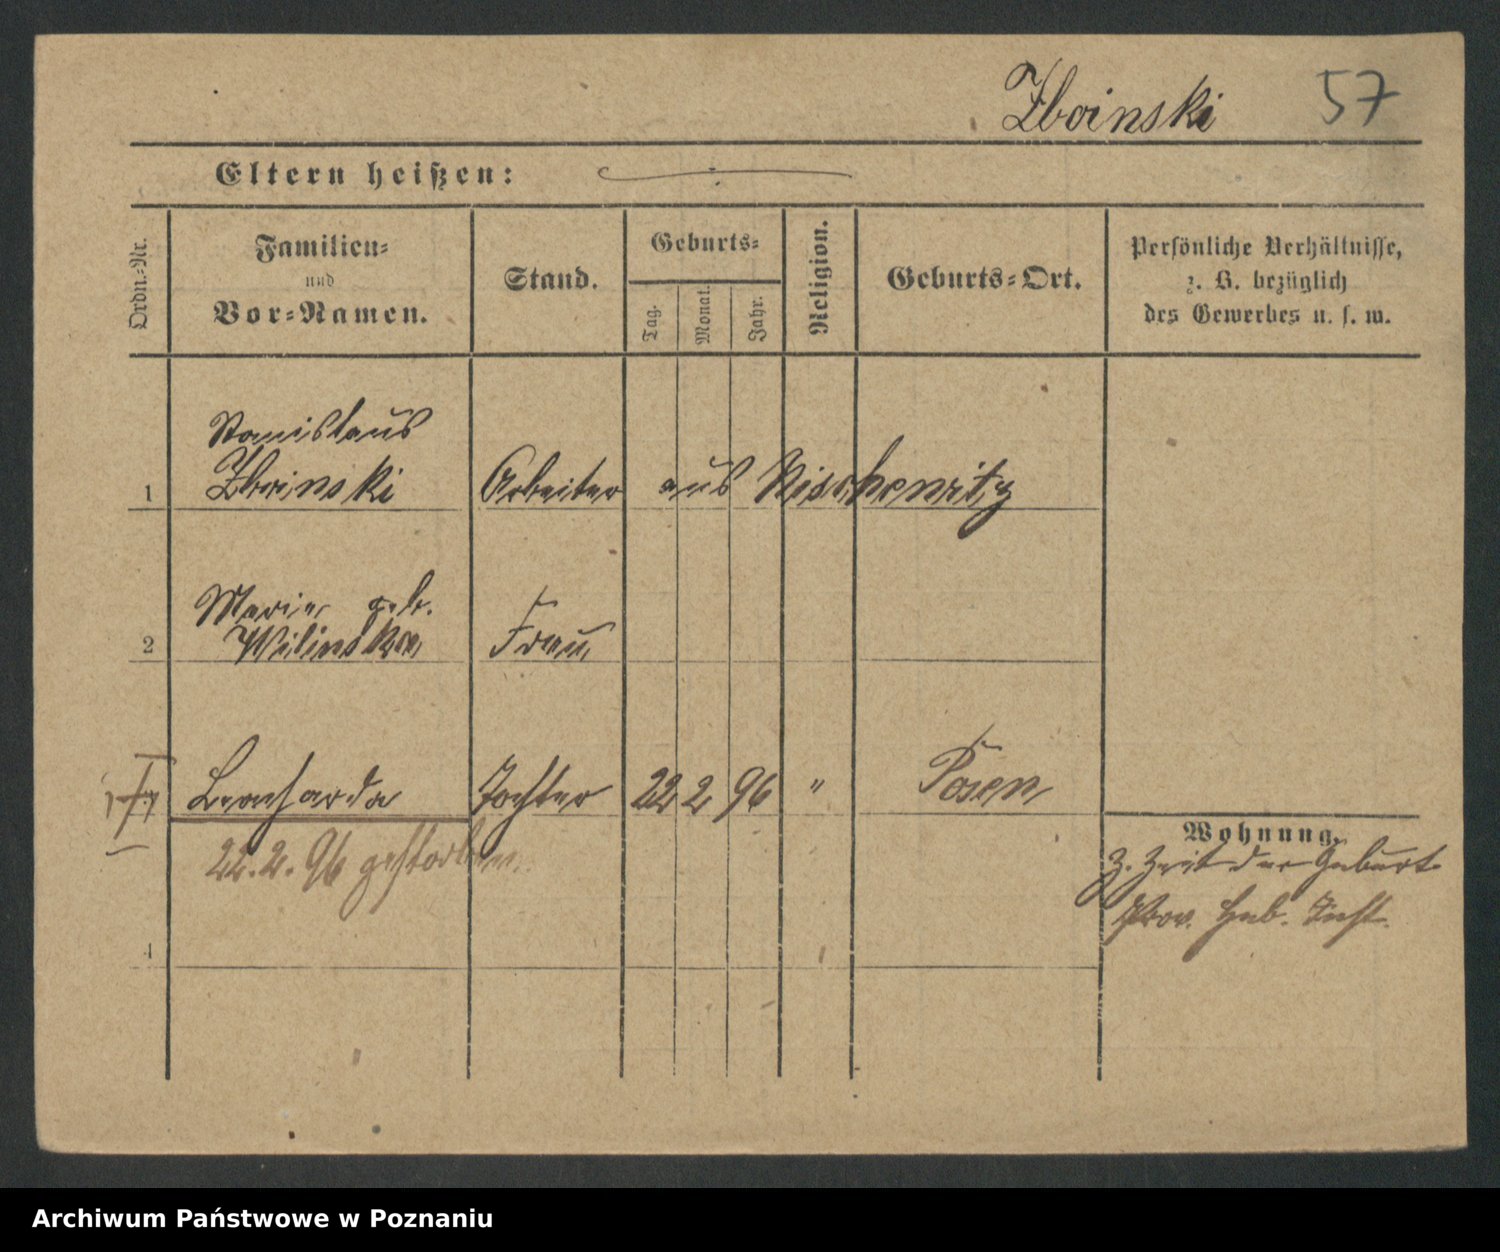 Zboinski 57
Eltern heißen:
Ordn.-Nr.
Familien-
und
Vor-Namen.
Stand.
Geburts-
Tag.
Monat.
Jahr.
Religion.
Geburts-Ort.
Persönliche Verhältnisse,
z. B. bezüglich
des Gewerbes u. s. w.
Stanislaus
1 Zboinski Arbeiter aus
Marie geb.
2 Wilinska Frau
Bernharda Tochter 22 2 96 " Posen
22.2.96 gestorben
Wohnung.
z. Zeit der Geburt
Prov. Heb. Inst.
4
Archiwum Państwowe w Poznaniu